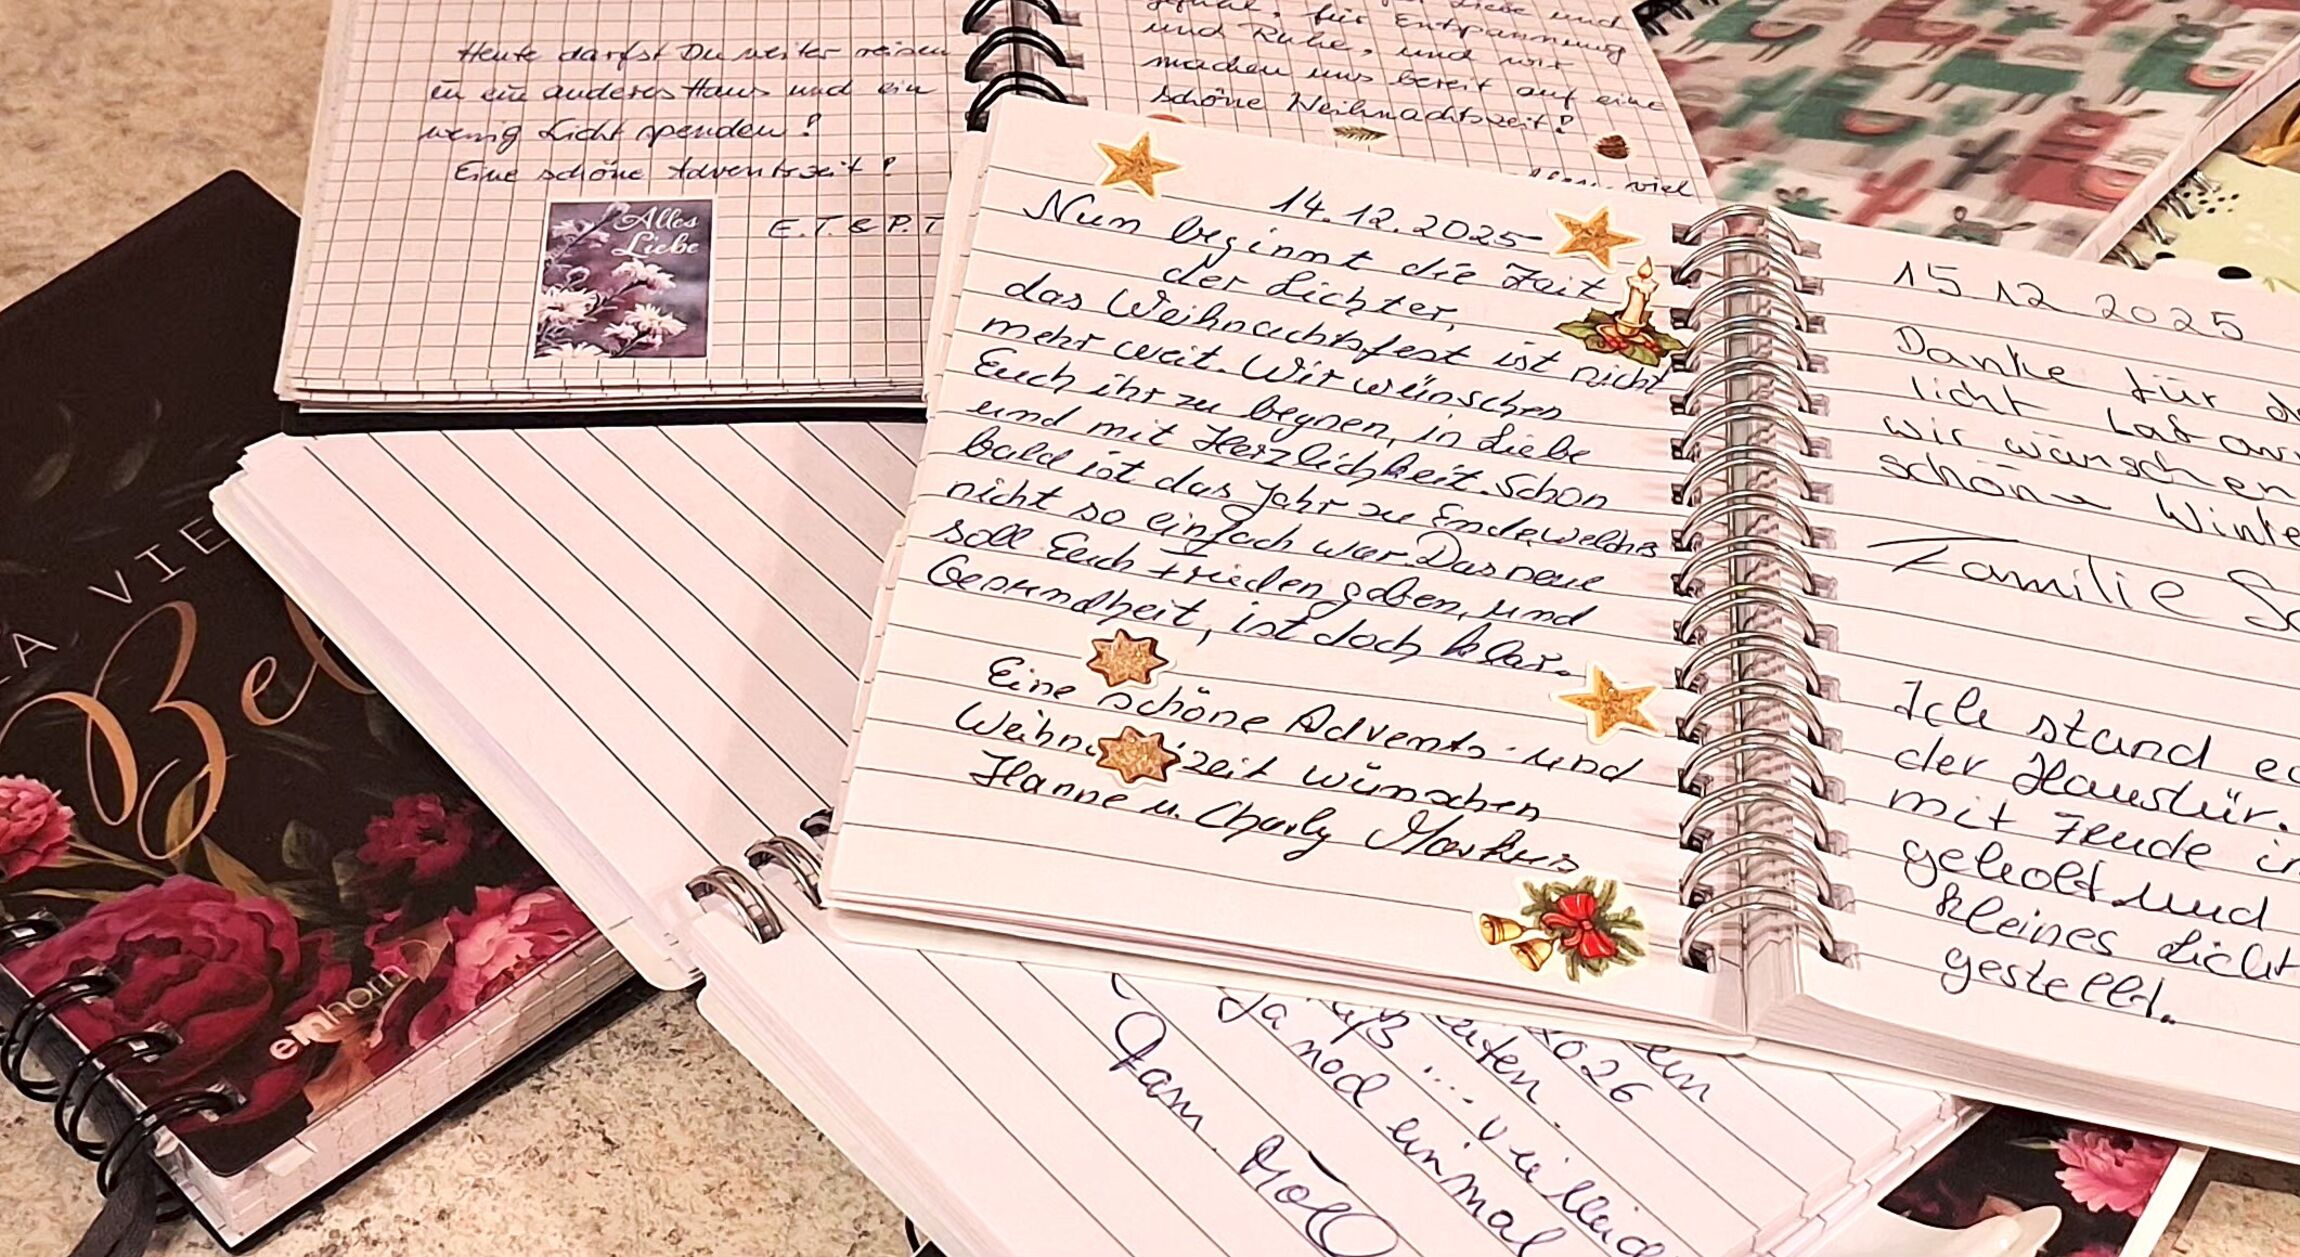 Heute darfst Du weiter reisen
in ein anderes Haus und ein
wenig Licht spenden!
Eine schöne Adventszeit!
Alles
Liebe
E.T. & P.T
Liebe und
für Entspannung
und Ruhe, und wir
machen uns bereit auf eine
schöne Weihnachtszeit!
viel
14.12.2025
Nun beginnt die Zeit
der Lichter,
das Weihnachtsfest ist nicht
mehr weit. Wir wünschen
Euch ihr zu begnen, in Liebe
und mit Herzlichkeit. Schon
bald ist das Jahr zu Ende, welches
nicht so einfach war. Das neue
soll Euch Frieden geben, und
Gesundheit, ist doch klar.
Eine schöne Advents- und
Weihn zeit wünschen
Hanne u. Charly Markus
15.12.2025
Danke für
licht
wir wünschen
schöne Winte
Familie
Ich stand
der Haustür.
mit Freude in
geholt und
kleines Licht
gestellt.
LA VIE
Bel
einhorn
ein
2026
Ja noch einmal
Fam.